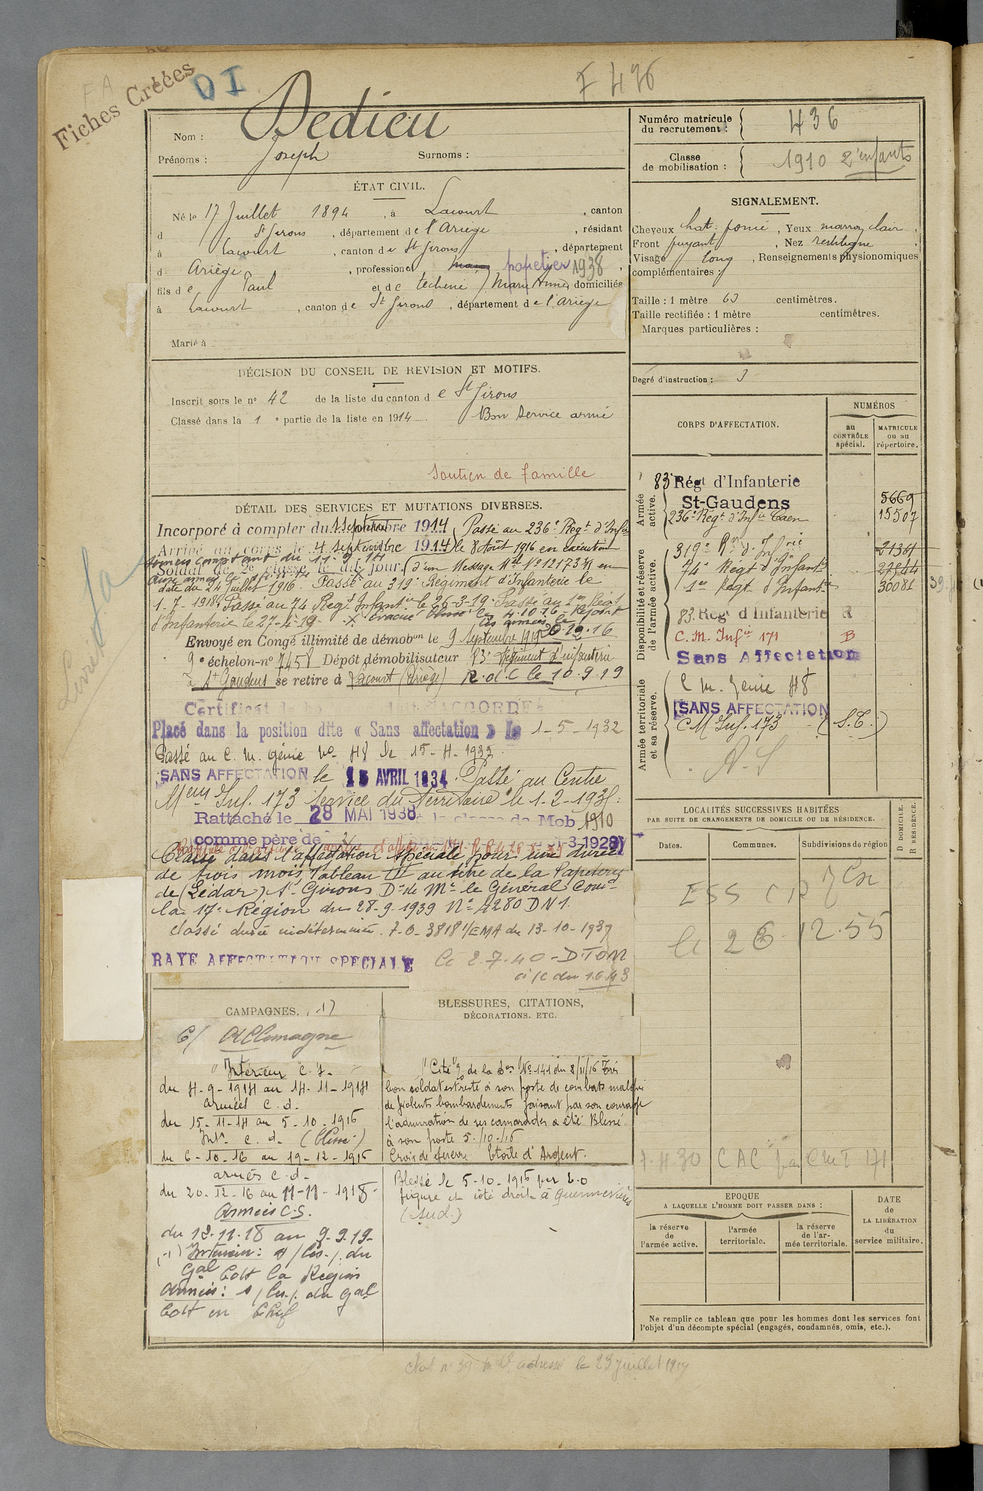 Fiches Créées
DI
F 426
Nom : Dedieu
Prénoms : Joseph Surnoms :
Numéro matricule du recrutement : 436
Classe de mobilisation : 1910 2 enfants
ÉTAT CIVIL.
Né le 17 Juillet 1894, à Lacourt, canton
d St Girons, département de l'Ariège, résidant
à Lacourt, canton de St Girons, département
d Ariège, profession d papetier 1938,
fils de Paul et de Techene Marie Anne, domiciliés
à Lacourt, canton de St Girons, département de l'Ariège
Marié à
SIGNALEMENT.
Cheveux chat. foncé, Yeux marron clair,
Front fuyant, Nez rectiligne,
Visage long, Renseignements physionomiques
complémentaires :
Taille : 1 mètre 63 centimètres.
Taille rectifiée : 1 mètre centimètres.
Marques particulières :
Degré d'instruction : 3
DÉCISION DU CONSEIL DE REVISION ET MOTIFS.
Inscrit sous le n° 42 de la liste du canton de St Girons
Classé dans la 1e partie de la liste en 1914 Bon Service armé
Soutien de famille
DÉTAIL DES SERVICES ET MUTATIONS DIVERSES.
Incorporé à compter du septembre 1914, Passé au 236e Régt d'Infie
Arrivé au corps le 4 septembre 1914 le 8 Août 1916 en exécution
Soldat de 2e classe le dit jour. d'un Message Mel N° 12173 M en
date du 24 juillet 1916. Passé au 319e Régiment d'Infanterie le
1.7.1918. Passé au 74 Régt Infantie le 26-3-19. Passé au 1er Régt
d'Infanterie le 27-4-19. Evacué blessé le 4.10.16. Rejoint
Envoyé en Congé illimité de démobon le 9 Septembre 1919
9e échelon-n° 7458 Dépôt démobilisateur 83e Régiment d'infanterie
à St Gaudens se retire à Lacourt (Ariège) R.d.C le 10.9.19
Placé dans la position dite « Sans affectation » le 1-5-1932
Passé au C. M. génie No 48 le 15-4-1932
SANS AFFECTATION le 15 AVRIL 1934. Passé au Centre
Meur Inf. 173 Service du Territoire le 1-2-1935.
Rattaché le 28 MAI 1938 à la classe de Mob 1910
comme père de 2
Classé dans l'affectation spéciale pour une durée
de trois mois Tableau III au titre de la Papeterie
de (Lédar) St Girons Don de Mr le Général Comt
la 17e Région du 28-9-1939 N° 4280 DN1.
Classé durée indéterminée. 7-0-3818 1/EMA du 13-10-1939
RAYÉ AFFECTATION SPÉCIALE le 2.7.40 - DTOM
a/c du 1.6.43
CORPS D'AFFECTATION.
NUMÉROS
au CONTRÔLE spécial.
MATRICULE ou au répertoire.
Armée active.
83e Régt d'Infanterie St-Gaudens 5669
236e Régt d'Infie Caen 15507
Disponibilité et réserve de l'armée active.
319e Rgt d'Infie 21361
74e Régt d'Infantie
1er Régt d'Infantie 30081
83 Régt d'Infanterie R
C. M. Infie 171 B
Sans Affectation
Armée territoriale et sa réserve.
C. M. Génie 48
SANS AFFECTATION
C M Inf. 173 (S.T.)
LOCALITÉS SUCCESSIVES HABITÉES
PAR SUITE DE CHANGEMENTS DE DOMICILE OU DE RÉSIDENCE.
Dates. Communes. Subdivisions de région D DOMICILE. R RÉSIDENCE.
ESS CP
le 26 12.55
7.4.30 CAC CMI 171
CAMPAGNES. (1)
C/ Allemagne
Intérieur C.d.
du 4-9-1914 au 14-11-1914
Armées C.d.
du 15-11-14 au 5-10-1916
Intr C.d. (blessé)
du 6-10-16 au 19-12-1916
armées C.d.
du 20-12-16 au 11-11-1918
Armées C.S.
du 12.11.18 au 9.9.19.
(1) Intérieur : s/ les /. du
Gal Cdt la Région
Armées : s/ les /. du Gal
Cdt en Chef
BLESSURES, CITATIONS,
DÉCORATIONS, ETC.
"Cité" O. de la Don N° 141 du 8/11/16
bon soldat est resté à son poste de combat malgré
de violents bombardements faisant par son courage
l'admiration de ses camarades a été Blessé
à son poste 5/10/16
Croix de Guerre Etoile d'Argent.
Blessé le 5-10-1916 par E.O
figure et côté droit à
(sud.)
EPOQUE
A LAQUELLE L'HOMME DOIT PASSER DANS :
la réserve de l'armée active.
l'armée territoriale.
la réserve de l'armée territoriale.
DATE de LA LIBÉRATION du service militaire.
Ne remplir ce tableau que pour les hommes dont les services font
l'objet d'un décompte spécial (engagés, condamnés, omis, etc.).